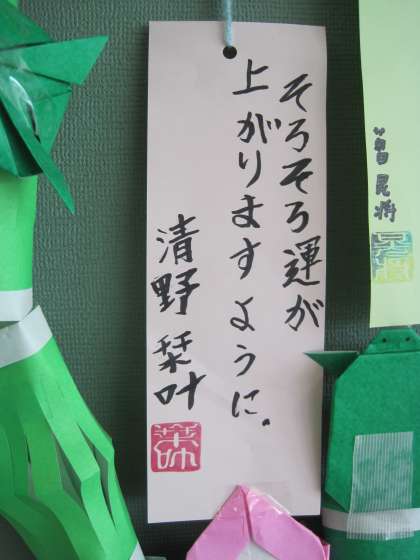 そろそろ運が
上がりますように。
清野 栞叶